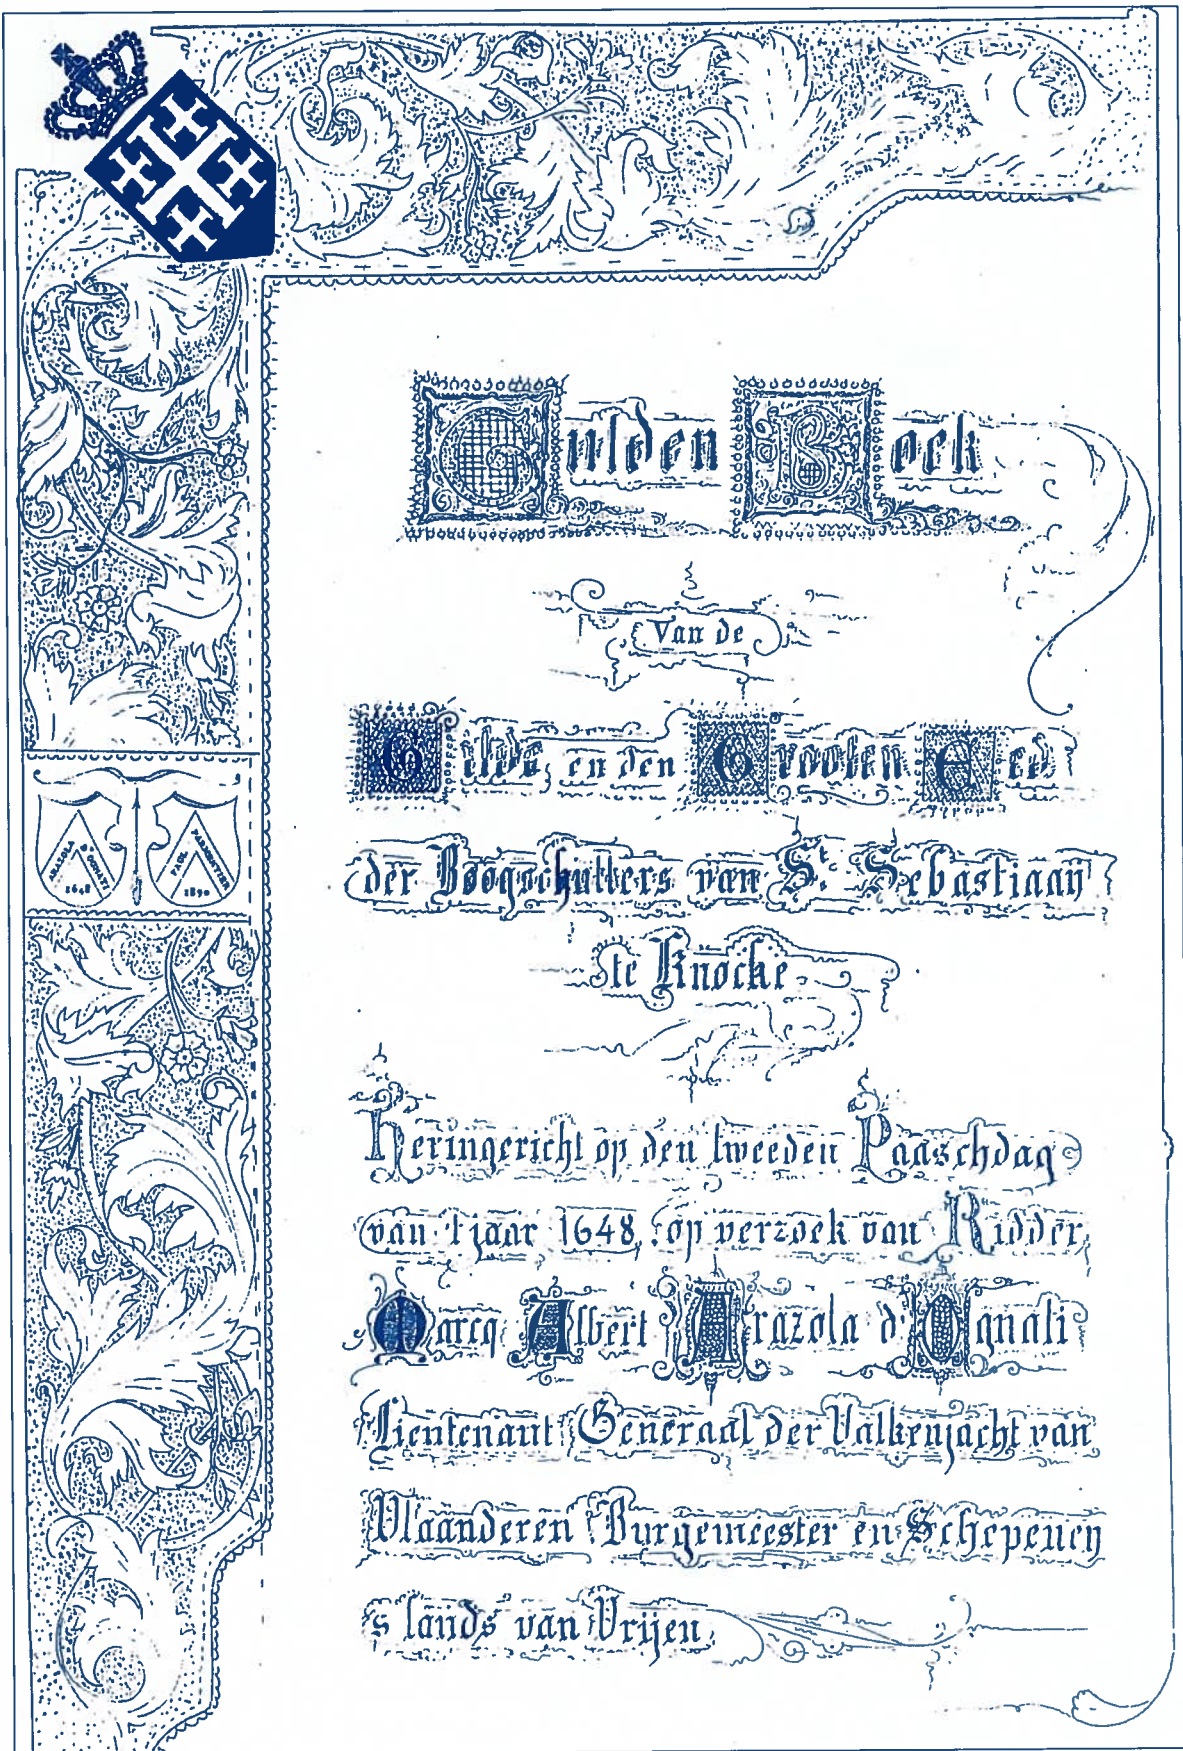 Gulden Boek
Van de
Gilde, en den Grooten Eed
der Boogschutters van St. Sebastiaan
te Knocke
Heringericht op den tweeden Paaschdag
van 't jaar 1648, op verzoek van Ridder
Marcq Albert Arazola d'Ognati
Lieutenant Generaal der Valkenjacht van
Vlaanderen Burgemeester en Schepenen
's lands van Vrijen
ARAZOLA D'OGNATI
1648
PAUL PARMENTIER
1890